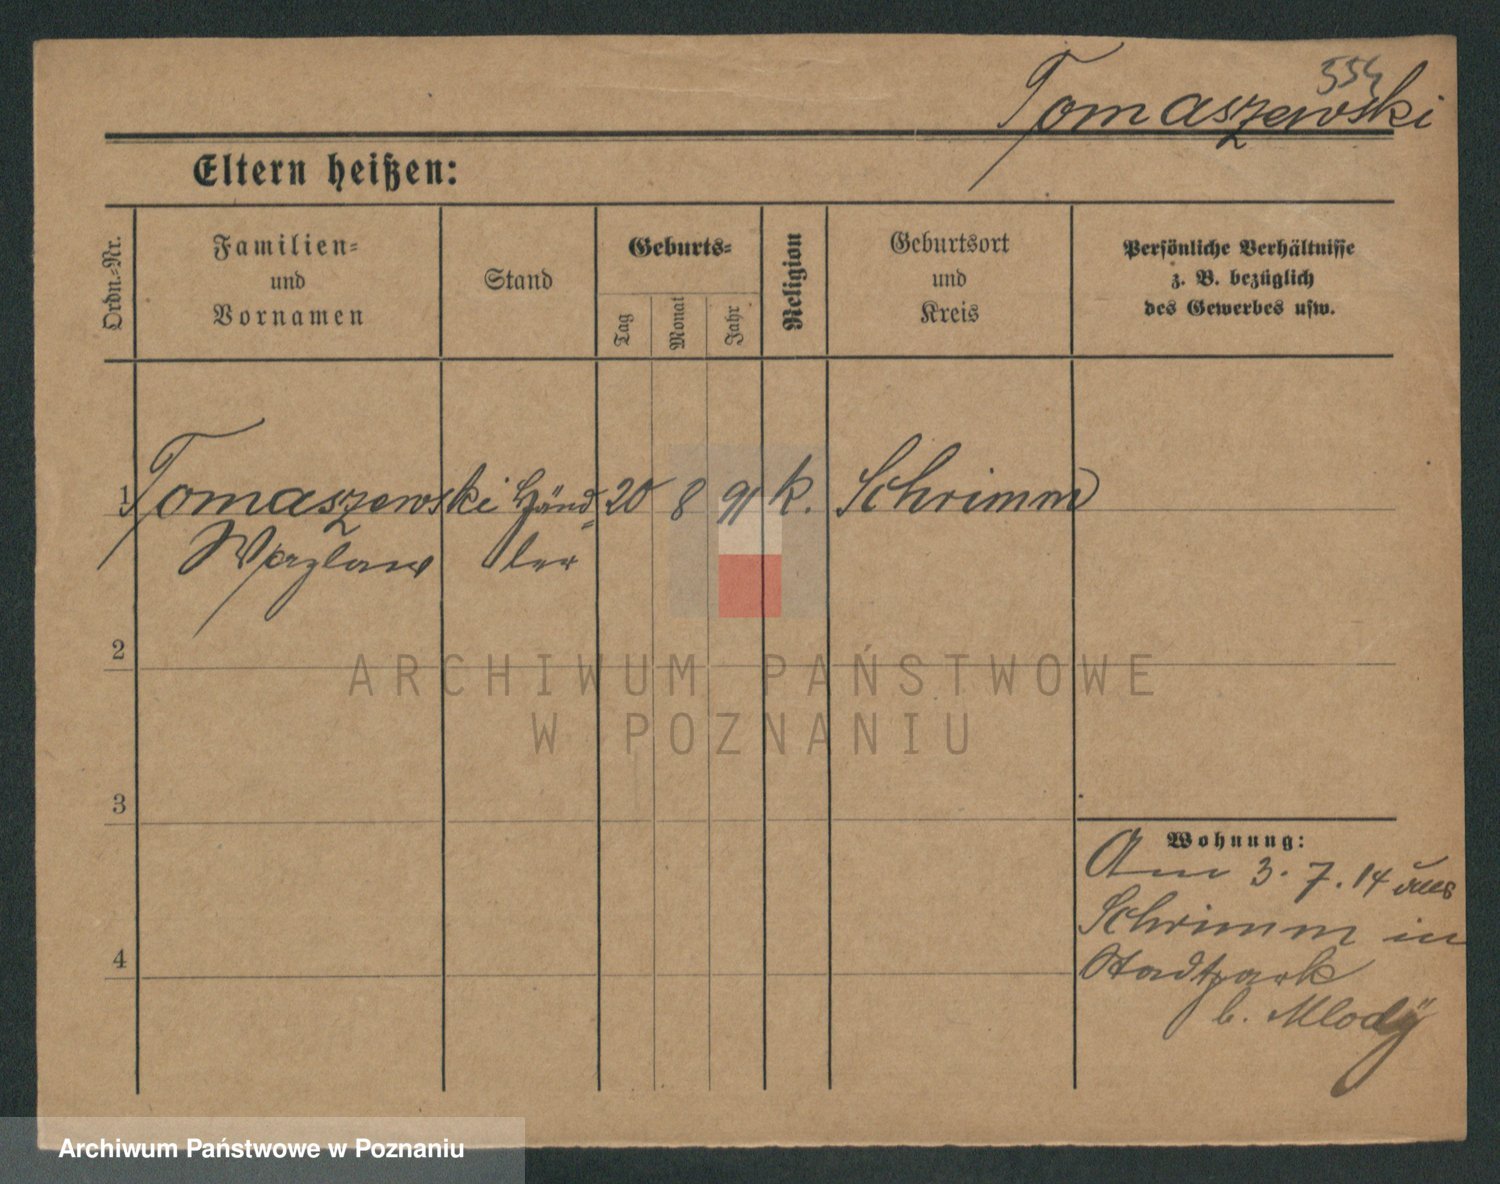 554
Tomaszewski
Eltern heißen:
Ordn.-Nr.
Familien-
und
Vornamen
Stand
Geburts-
Tag
Monat
Jahr
Religion
Geburtsort
und
Kreis
Persönliche Verhältnisse
z. B. bezüglich
des Gewerbes usw.
1 Tomaszewski Händ- 20 8 91 k. Schrimm
Wazlaw ler
2
ARCHIWUM PAŃSTWOWE
W POZNANIU
3
Wohnung:
Am 3. 7. 14 aus
Schrimm in
Stadtpark
b. Mlody
4
Archiwum Państwowe w Poznaniu